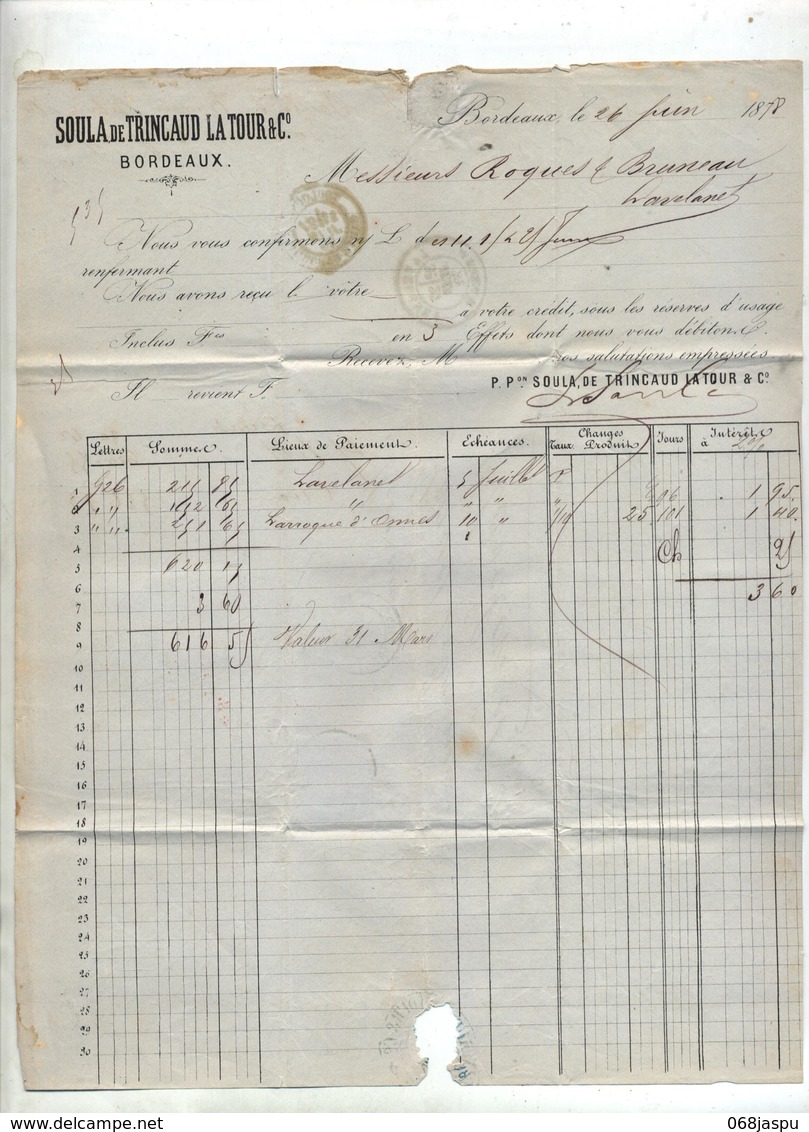 SOULA, DE TRINCAUD LATOUR & Cº
BORDEAUX.
Bordeaux, le 26 Juin 1878
Messieurs Roques & Bruneau
Lavelanet
Nous vous confirmons n/ L d
renfermant
Nous avons reçu l votre
à votre crédit, sous les réserves d'usage
Inclus Fcs en 3 Effets dont nous vous débitons.
Recevez, M nos salutations empressées.
Il revient F.
P. Pon SOULA, DE TRINCAUD LATOUR & Cº
Lettres Sommes Lieux de Paiement. Echéances. Changes Jours Intérêts
Taux Produit à 2%
1 Lavelanet 5 Juillet 96 1 95
2 " " " "
3 " " 251 65 Larroque d'Olmes 10 " 1/10 25 101 1 40
4 Ch 25
5 620 15
6 3 60
7 3 60
8
9 616 55 Valeur 31 Mars
10
11
12
13
14
15
16
17
18
19
20
21
22
23
24
25
26
27
28
29
30
068jaspu